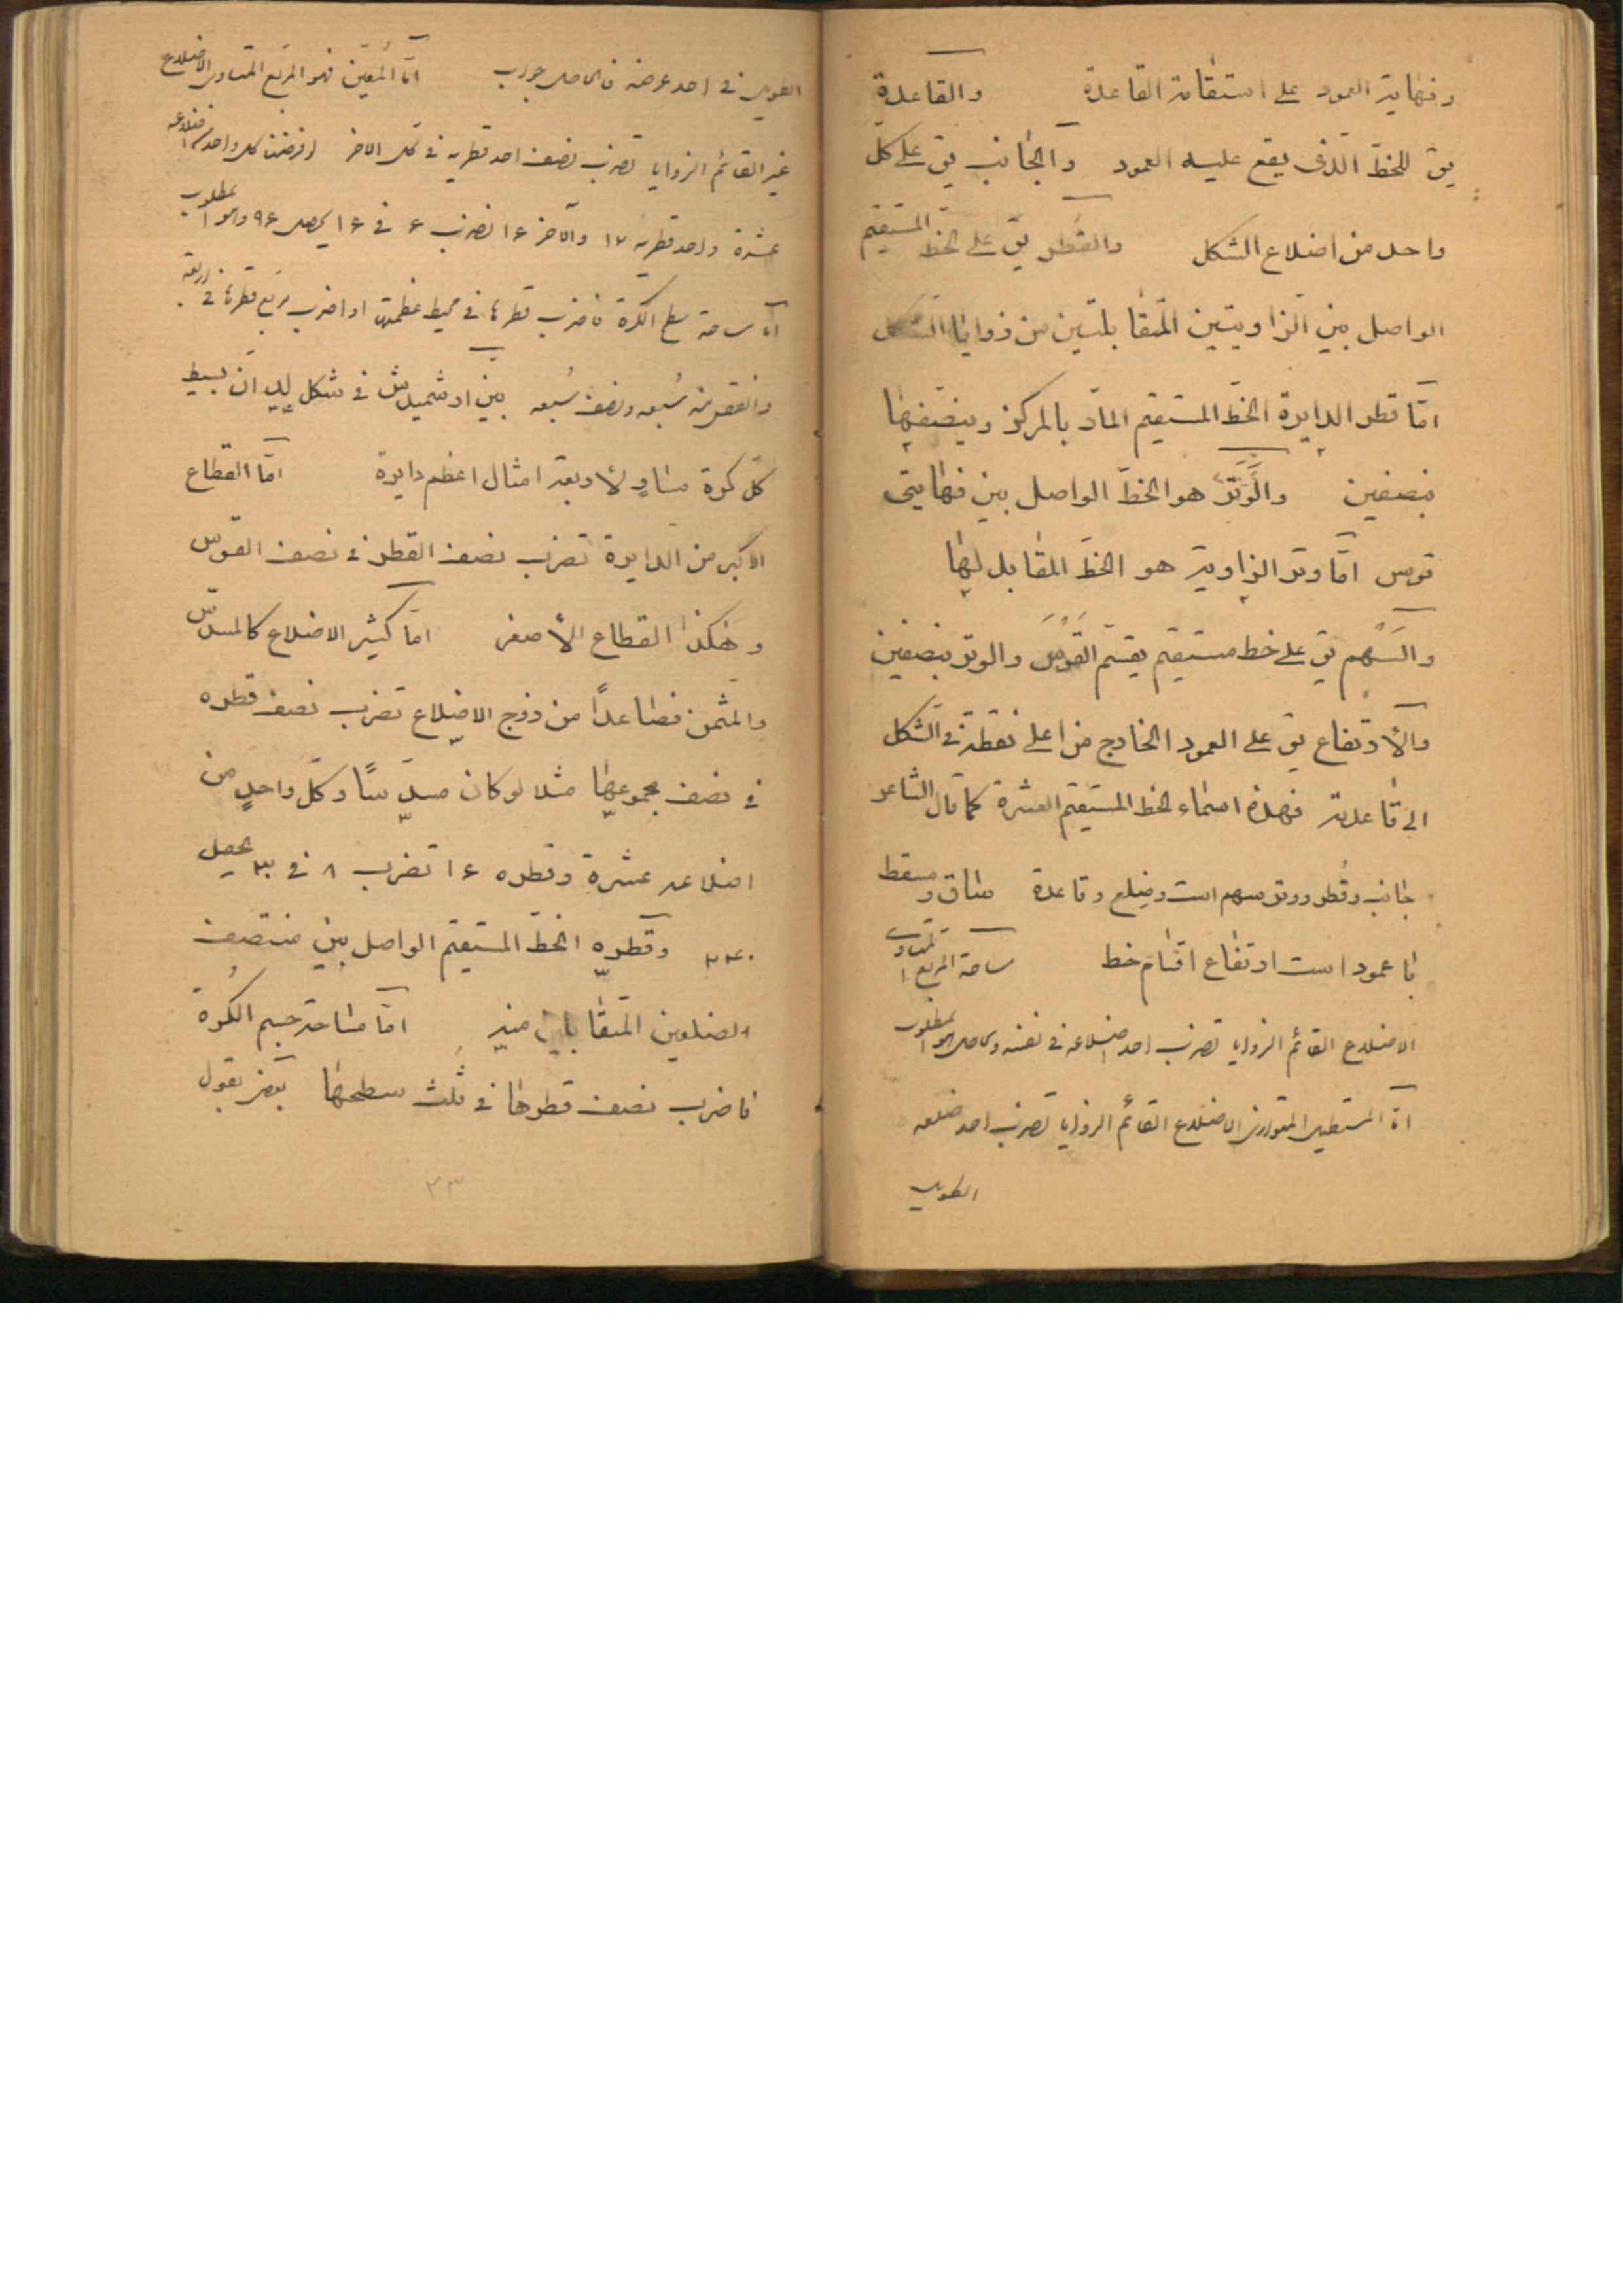 ونهاية العمود على استقامة القاعدة والقاعدة
يق للخط الذى يقع عليه العمود والجانب يق على كل
واحد من اضلاع الشكل والقطر يق على الخط المستقيم
الواصل بين الزاويتين المتقابلتين من زوايا الشكل
امّا قطر الدايرة الخط المستقيم المارّ بالمركز وينصفها
بنصفين والوَتَر هو الخط الواصل بين نهايتى
قوس امّا وتر الزاوية هو الخط المقابل لها
والسهم يق على خط مستقيم يقسم القوس والوتر بنصفين
والأرتفاع يق على العمود الخارج من اعلى نقطة فى الشكل
الى قاعدته فهذه اسماء الخط المستقيم العشرة كما قال الشاعر
جانب وقطر ووتر سهم است وضلع وقاعدة ساق و مسقط
با عمود است ارتفاع اقسام خط مساحة المربع المتساوى
الاضلاع القائم الزوايا تضرب احد اضلاعه فى نفسه والحاصل هو المطلوب
امّا المستطيل المتوازى الاضلاع القائم الزوايا تضرب احد ضلعه
الطويل
الطويل فى احد عرضه فالحاصل جواب امّا المعيّن فهو المربع المتساوى الاضلاع
غير القائم الزوايا تضرب نصف احد قطريه فى كل الاخر لو فرضنا كل واحد من اضلاعه
عشرة واحد قطريه ١٢ والآخر ١۶ نضرب ۶ فى ١۶ يحصل ٩۶ وهو المطلوب
امّا مساحة سطح الكرة فاضرب قطرها فى محيط عظيمتها او اضرب مربع قطرها فى اربعة
وانقص منه سُبعه ونصف سُبعه بيّن ارشميدش فى شكل انّ بسيط
كلّ كرة مساوٍ لأربعة امثال اعظم دايرة امّا القطاع
الاكبر من الدايرة تضرب نصف القطر فى نصف القوس
وهكذا القطاع الأصغر امّا كثير الاضلاع كالمسدّس
والمثمّن فصاعداً من زوج الاضلاع تضرب نصف قطره
فى نصف مجموعها مثلا لو كان مسدّسًا وكلّ واحدٍ من
اضلاعه عشرة وقطره ١۶ تضرب ٨ فى ٣٠ يحصل
٢۴٠ وقطره الخط المستقيم الواصل بين منتصف
الضلعين المتقابلين منه امّا مساحة جسم الكُرة
فاضرب نصف قطرها فى ثلث سطحها بعض يقول
٣٣